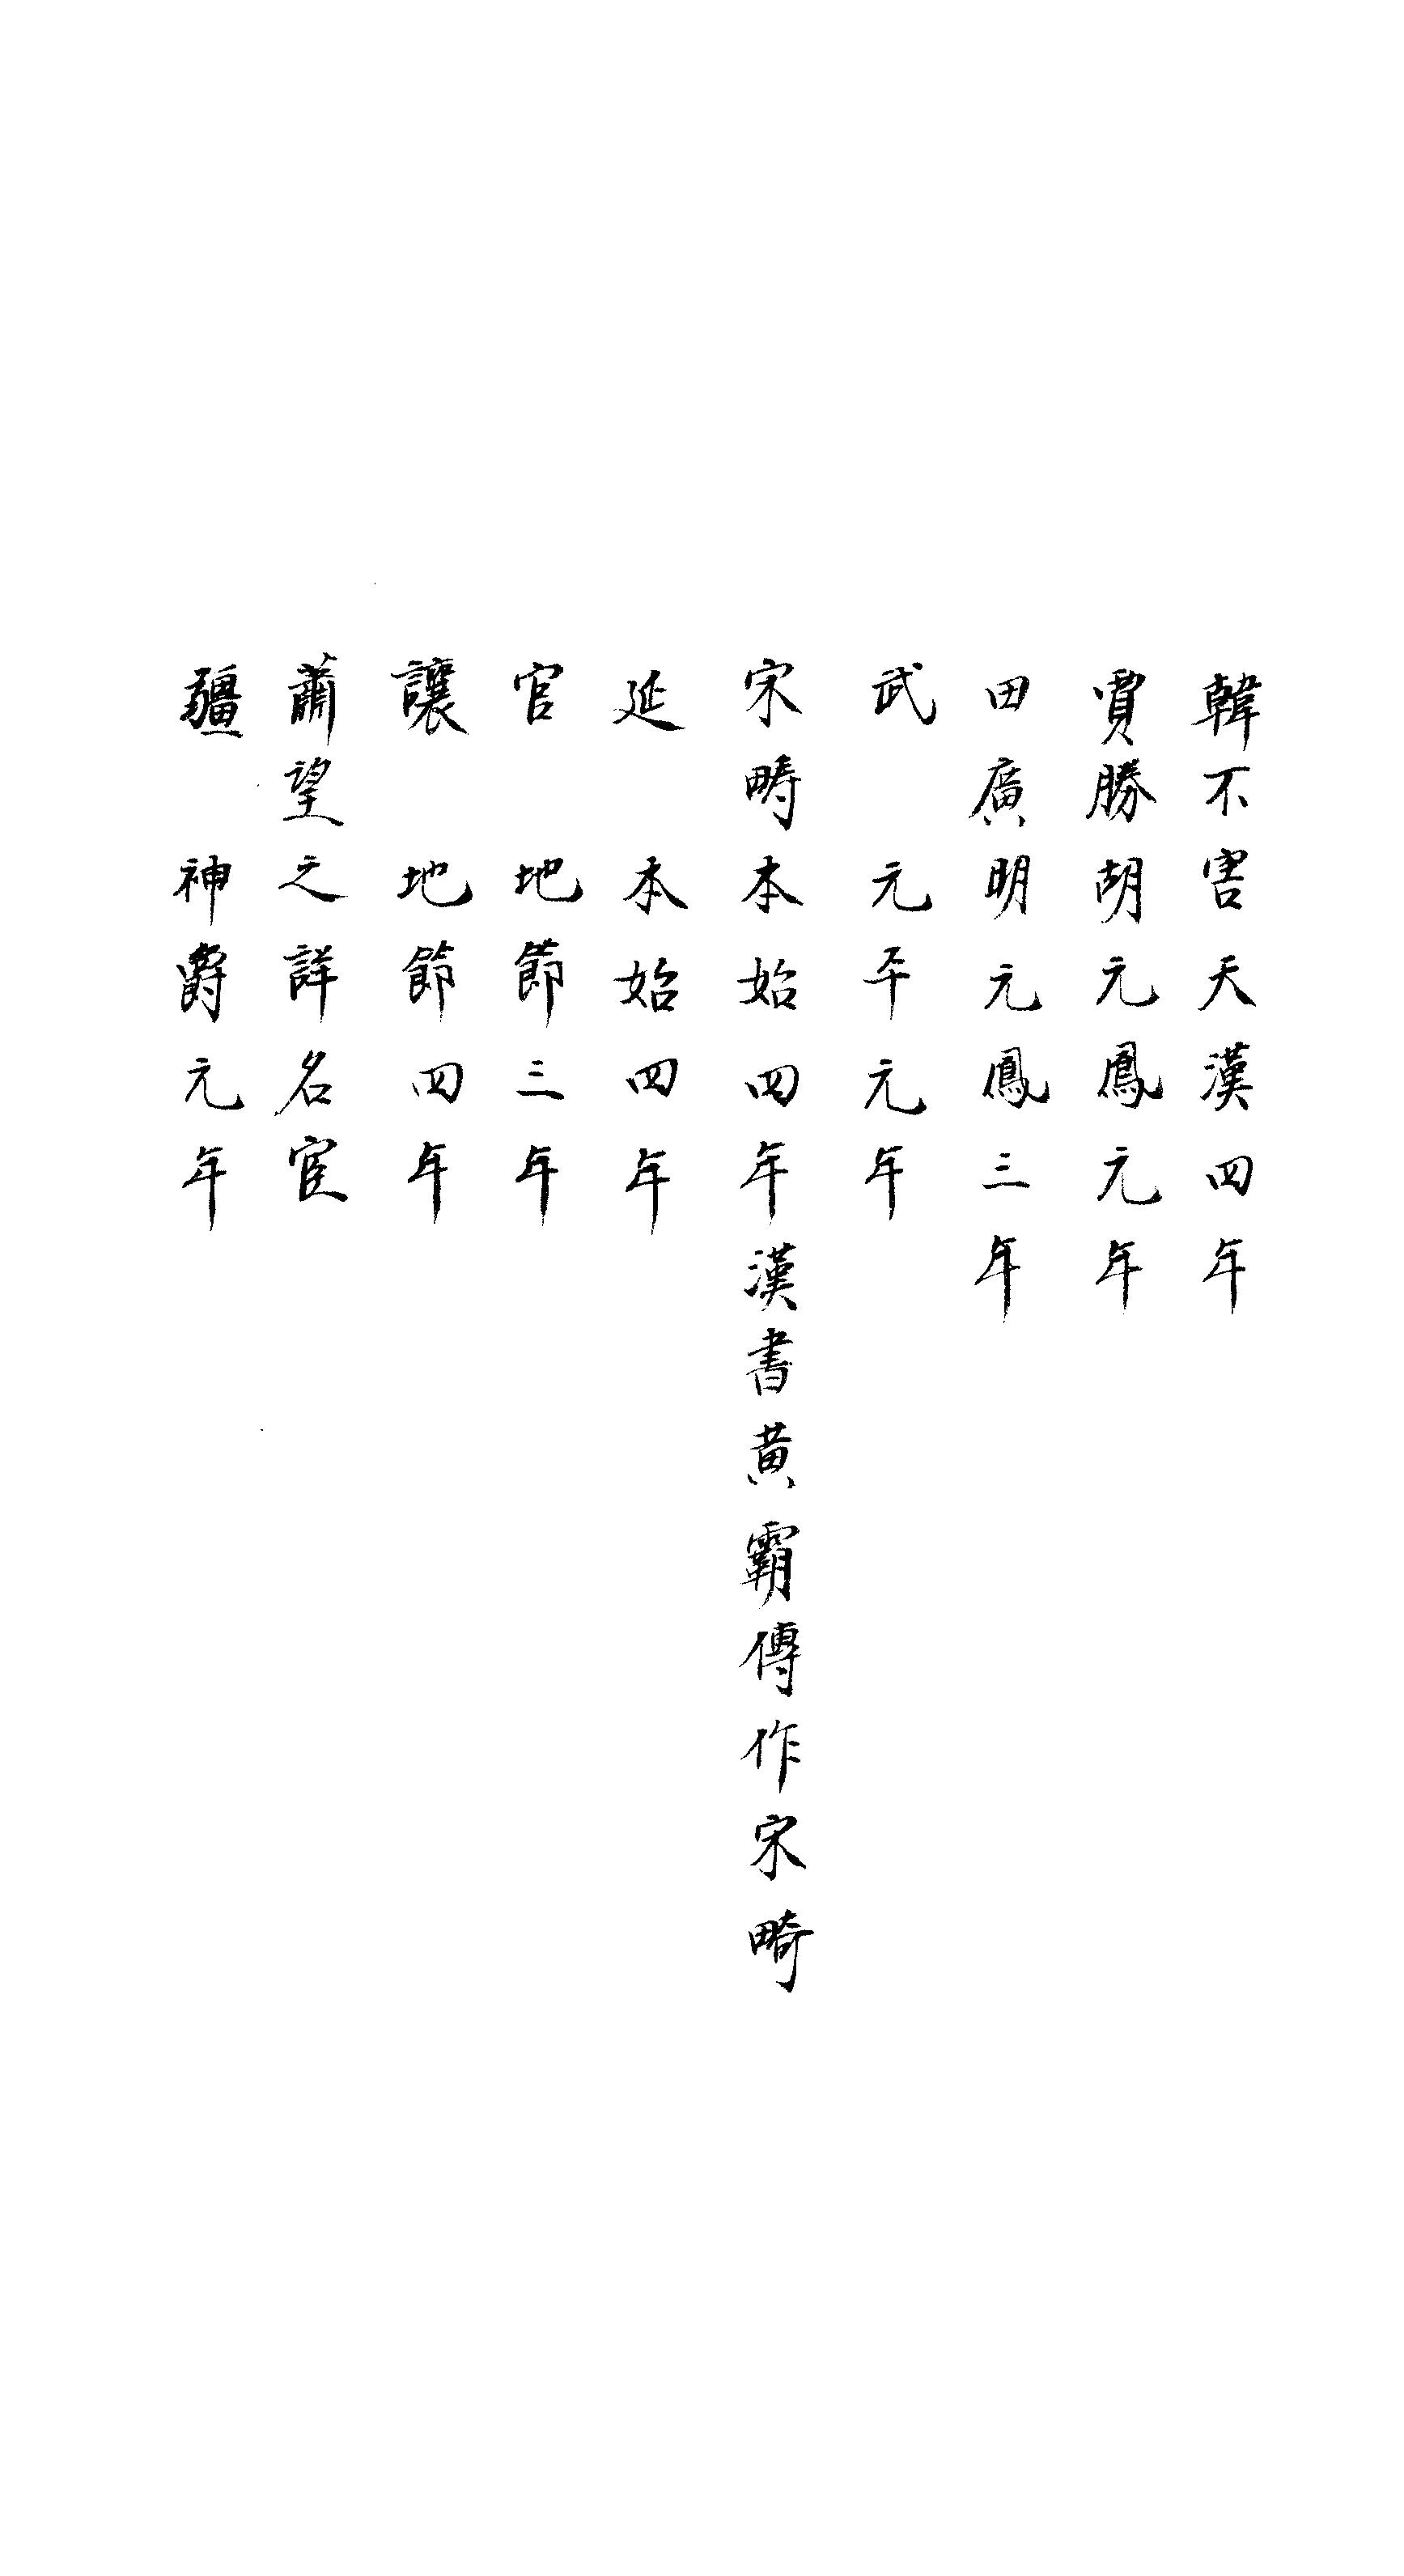 韓不害天漢四年
賈勝胡元鳳元年
田廣明元鳳三年
武　元平元年
宋疇本始四年漢書黄霸傳作宋畸
延　本始四年
官　地節三年
讓　地節四年
蕭望之詳名宦
彊　神爵元年